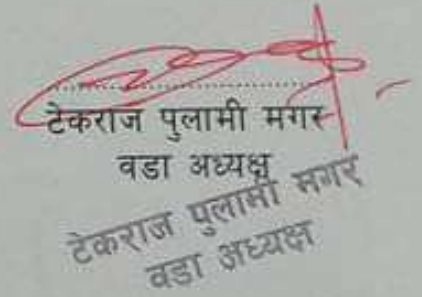 टेकराज पुलामी मगर
वडा अध्यक्ष
टेकराज पुलामी मगर
वडा अध्यक्ष